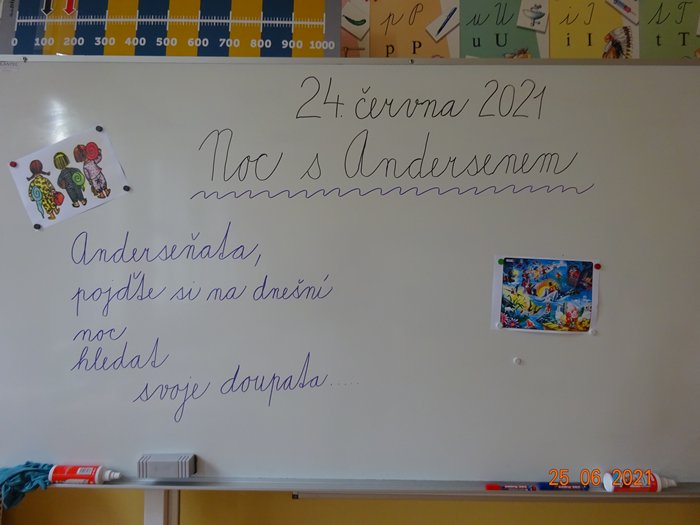 100 200 300 400 500 600 700 800 900 1000
p P u U i I t T
p P u U i I t T
24. června 2021
Noc s Andersenem
Anderseňata,
pojďte si na dnešní
noc
hledat
svoje doupata.....
25 06 2021